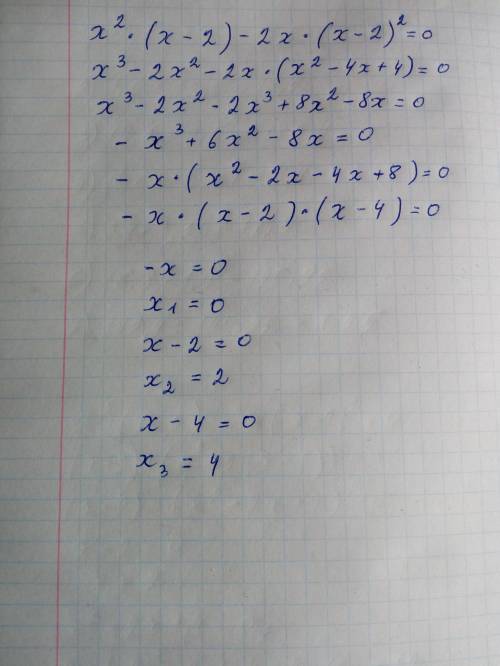 x² · (x - 2) - 2x · (x - 2)² = 0
x³ - 2x² - 2x · (x² - 4x + 4) = 0
x³ - 2x² - 2x³ + 8x² - 8x = 0
- x³ + 6x² - 8x = 0
- x · (x² - 2x - 4x + 8) = 0
- x · (x - 2) · (x - 4) = 0
-x = 0
x₁ = 0
x - 2 = 0
x₂ = 2
x - 4 = 0
x₃ = 4